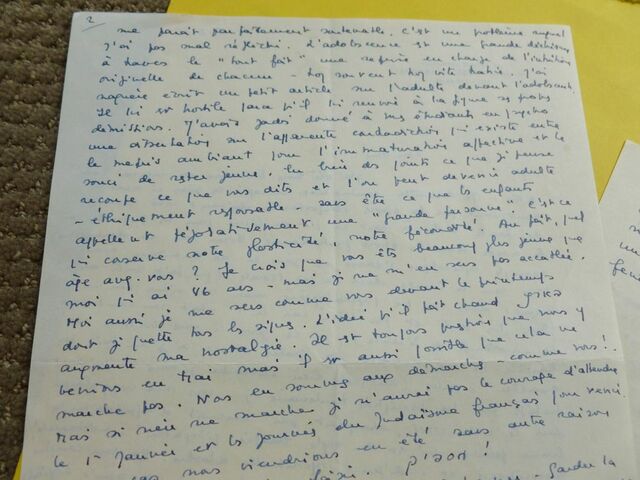 2
me paraît parfaitement soutenable. C'est un problème auquel
j'ai pas mal réfléchi. L'adolescence est une grande
à travers le "tout fait" une reprise en charge de l'intuition
originelle de chacun - trop souvent trop vite trahie. J'ai
naguère écrit un petit article sur l'adulte devant l'adolescent.
Il lui est hostile parce qu'il lui renvoie à la figure ses propres
démissions. J'avais jadis donné à mes étudiants en psycho
une dissertation sur l'apparente contradiction qui existe entre
le mépris ambiant pour l'immaturation affective et le
souci de rester jeune. En bien des points ce que je pense
recoupe ce que vous dites et l'on peut devenir adulte
- éthiquement responsable - sans être ce que les enfants
appellent péjorativement une "grande personne". C'est ce
qui conserve notre plasticité, notre fécondité. Au fait, quel
âge avez-vous ? Je crois que vous êtes beaucoup plus jeune que
moi qui ai 46 ans - mais je ne m'en sens pas accablée.
Moi aussi je me sens comme vous devant le printemps
dont je guette tous les signes. L'idée qu'il fait chaud
augmente ma nostalgie. Il est toujours question que nous y
venions en Mai mais il est aussi possible que cela ne
marche pas. Nous en sommes aux démarches - comme vous !
Mais si rien ne marche je n'aurai pas le courage d'attendre
le 1er Janvier et les journées du Judaïsme français pour venir.
nous viendrions en été sans autre raison
!
Garder la